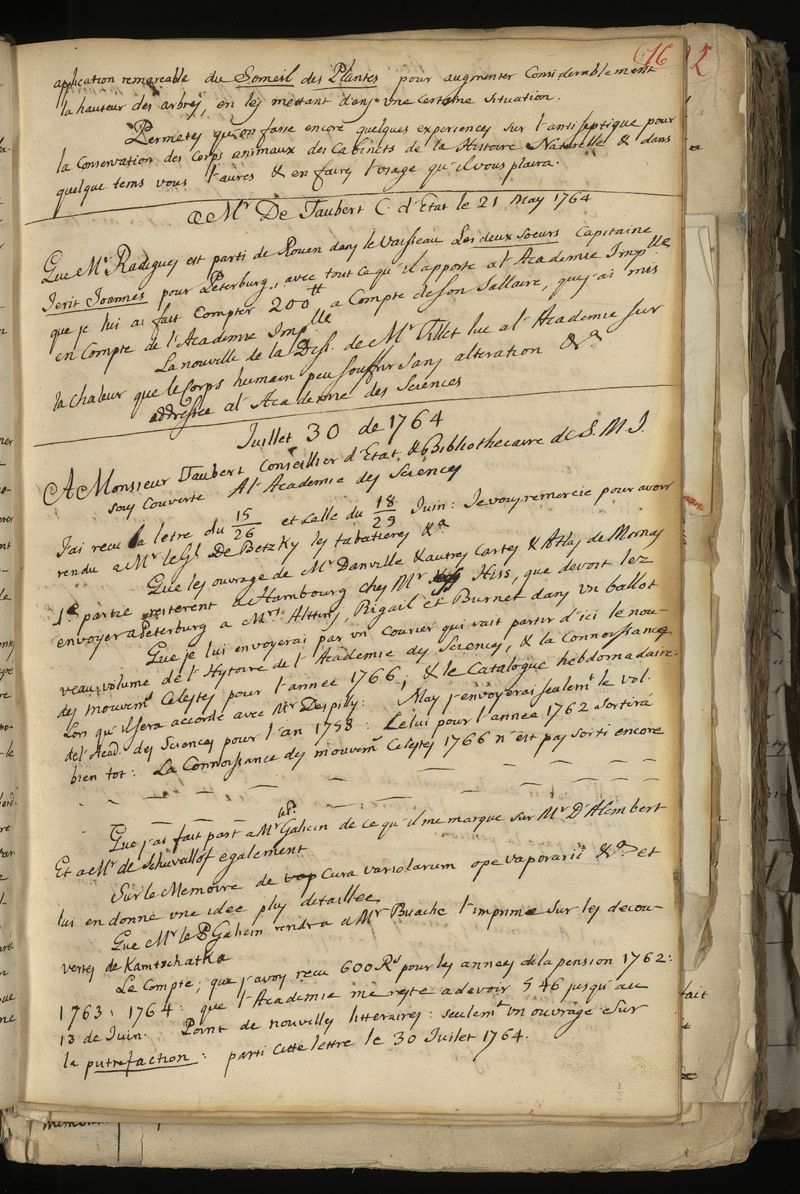 76
application remarcable du Someil des Plantes pour augmenter Considerablement
la hauteur des arbres, en les mettant dans une Certaine situation.
Permetes qu'on fasse encore quelques experiences sur l'antiseptique pour
la Conservation des Corps animaux des Cabinets de la Histoire Naturelle & dans
quelque tems vous l'aures & en faires l'usage qu'il vous plaira.
a Mr De Taubert C. d'Etat le 21 May 1764
Que Mr Radigues est parti de Rouen dans le Vaisseau Les deux soeurs Capitaine
Jerit Joannes pour Peterburg, avec tout ce qu'il apporte a l'Academie Implle
que je lui ai fait Compter 200 tt a Compte de son Sallaire, que j'ai mis
en Compte de l'Academie Implle
La nouvelle de la Dess. de Mr Tillet lue a l'Academie sur
la chaleur que le Corps humain peu souffrir sans alteration &a
addressée a l'Academie des Sciences
Juillet 30 de 1764
A Monsieur Taubert Conseillier d'Etat & Bibliothecaire de S. M. I.
sous Couverte A l'Academie des Sciences
J'ai recu la letre du 15/26 et celle du 18/29 Juin: Je vous remercie pour avoir
rendu a Mr le Gl De Betzky les tabatieres &a
Que les ouvrage de Mr Danville & autres Cartes & Atlas de Mornas
1e partie resterent a Hambourg Ches Mr Hiss, que devoit lez
envoyer a Peterburg a Mrs Alttins, Rigail et Burnet dans un ballot
Que je lui envoyerai par un Courier qui vait partir d'ici le nou-
veau volume de l'Hystoire de l'Academie des Sciences, & la Connoissance
des mouvemt Celestes pour l'année 1766; & le Catalogue hebdomadaire:
Lors qu'il sera accordé avec Mr Despilly: May j'envoyerai sealemt le vol.
de l'Acad. des Sciences pour l'an 1758: Celui pour l'année 1762 sortirá
bien tot: La Connoissance des mouvemt Celestes 1766 n'est pas sorti encore
Que j'ai fait part a Mr le P. Galicin de ce qu'il me marque sur Mr D'Alembert
Et a Mr de Schuvallof egalement
Sur le Memoire de Cura variolarum ope vaporarii &a et
lui en donne une idée plus detaillée
Que Mr le P Galicin rendra a Mr Buache l'imprime sur les decou-
vertes de Kamtschatka
Le Compte; que j'avois recu 600 Rs pour les annees de la pension 1762:
1763: 1764: que l'Academie me reste a devoir 546 jusqu'au
13 de Juin. Point de nouvelles litteraires: seulemt un ouvrage sur
la putrefaction: parti cette lettre le 30 Juillet 1764.